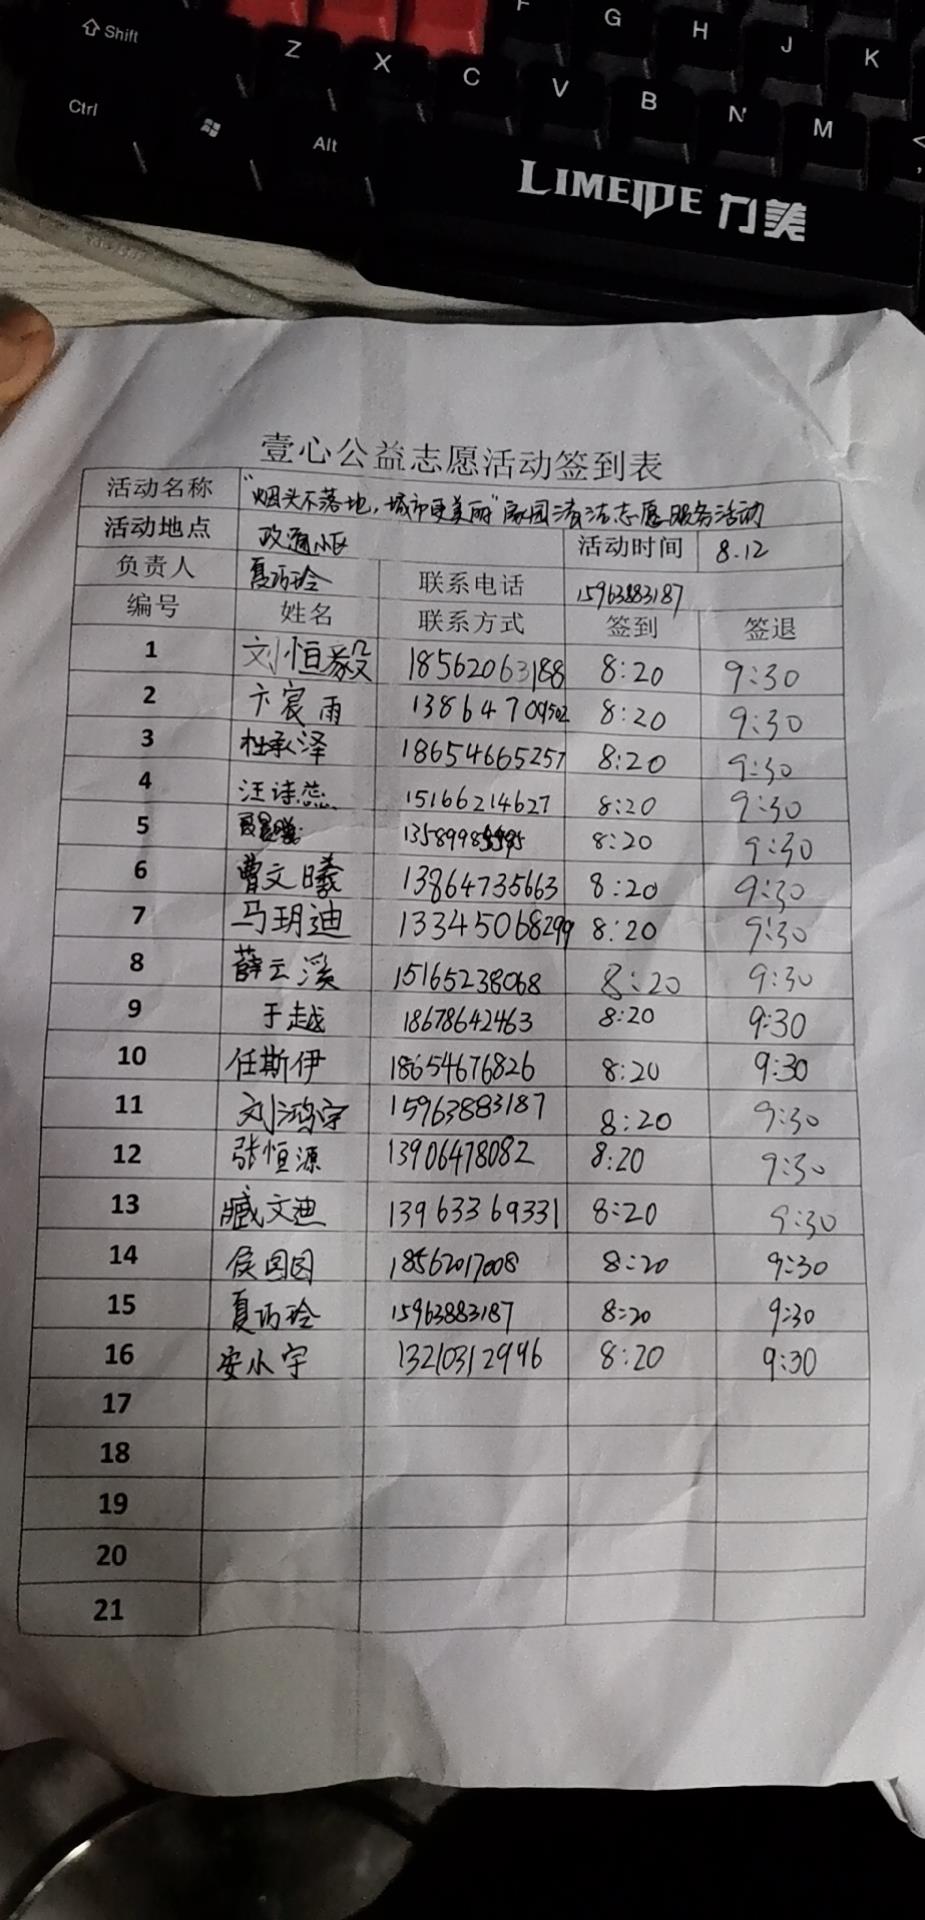 F G H J K
Shift Z X C V B N M <
Ctrl Alt ,
LIMEIDE 力美
壹心公益志愿活动签到表
活动名称 "烟头不落地,城市更美丽"家园清洁志愿服务活动
活动地点 政通小区 活动时间 8.12
负责人 夏巧玲 联系电话 15963883187
编号 姓名 联系方式 签到 签退
1 刘恒毅 18562063188 8:20 9:30
2 卞宸雨 13864709502 8:20 9:30
3 杜承泽 18654665257 8:20 9:30
4 汪诗蕊 15166214627 8:20 9:30
5 8:20 9:30
6 曹文曦 13864735663 8:20 9:30
7 马玥迪 13345068299 8:20 9:30
8 薛云溪 15165238068 8:20 9:30
9 于越 18678642463 8:20 9:30
10 任斯伊 18654676826 8:20 9:30
11 刘鸿宇 15963883187 8:20 9:30
12 张恒源 13906478082 8:20 9:30
13 臧文迪 13963369331 8:20 9:30
14 侯囡囡 18562017008 8:20 9:30
15 夏巧玲 15963883187 8:20 9:30
16 安小宇 13210312996 8:20 9:30
17
18
19
20
21